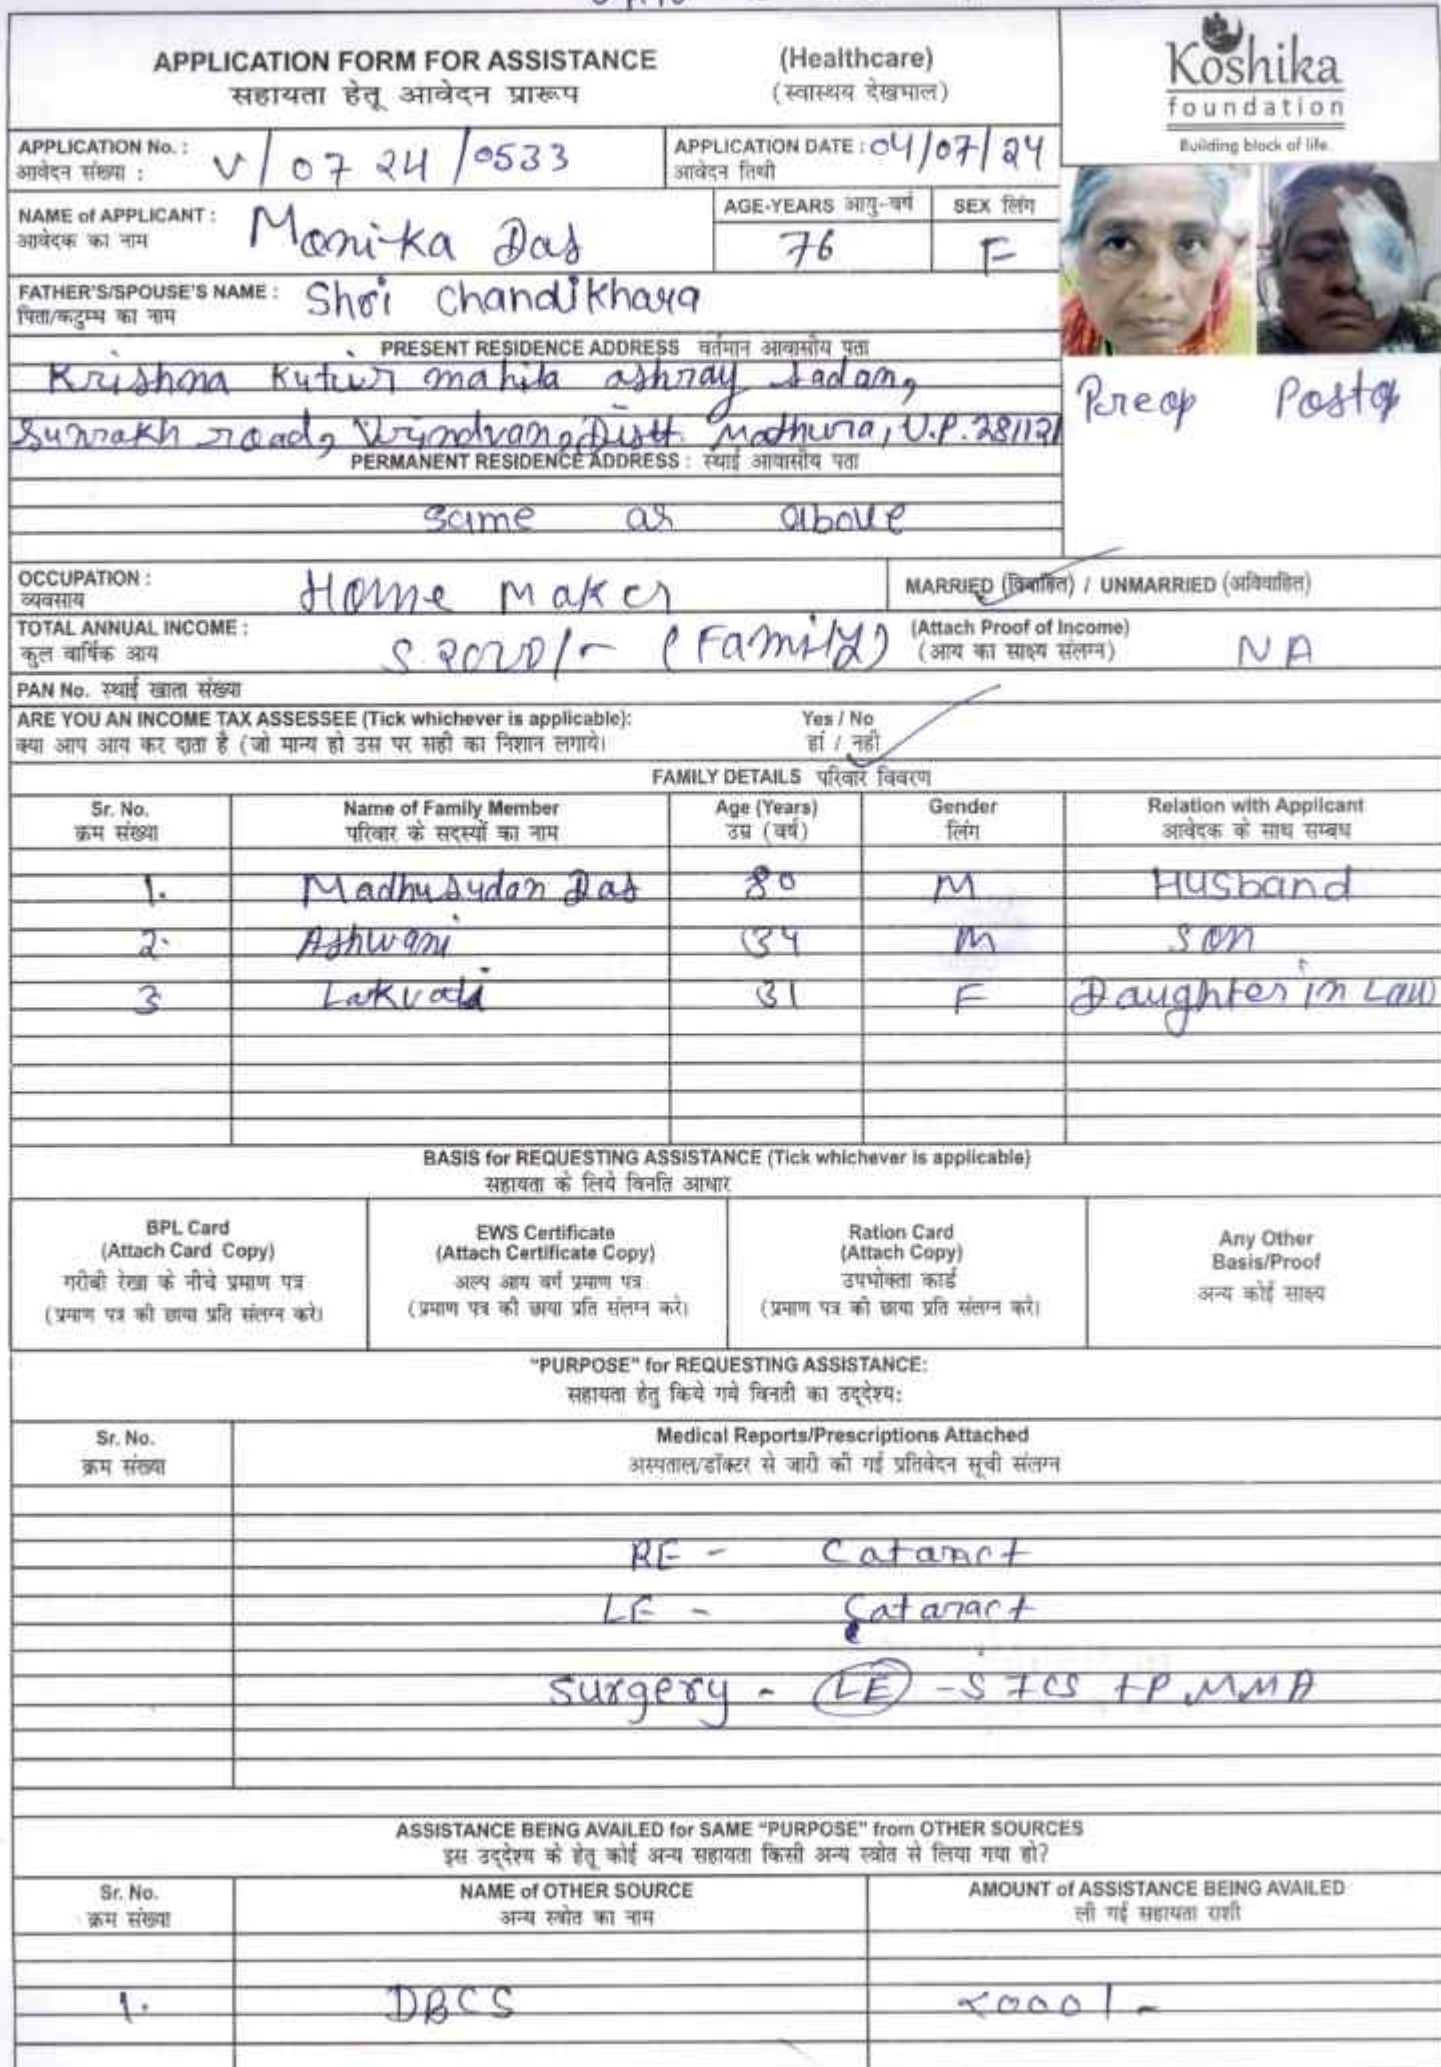 APPLICATION FORM FOR ASSISTANCE (Healthcare)
सहायता हेतू आवेदन प्रारूप (स्वास्थय देखभाल)
Koshika
foundation
Building block of life.
APPLICATION No. : V/0724/0533 APPLICATION DATE : 04/07/24
आवेदन संख्या : आवेदन तिथी
NAME of APPLICANT : Monika Das AGE-YEARS आयु-वर्ष 76 SEX लिंग F
आवेदक का नाम
FATHER'S/SPOUSE'S NAME : Shri Chandikhara
पिता/कटुम्ब का नाम
PRESENT RESIDENCE ADDRESS वर्तमान आवासीय पता
Krishna Kutur mahila ashray Sadan,
Sunrakh road, Vrindvan, Distt. Mathura, U.P. 281121
Preop Postop
PERMANENT RESIDENCE ADDRESS : स्थाई आवासीय पता
Same as above
OCCUPATION : Home Maker MARRIED (विवाहित) / UNMARRIED (अविवाहित)
व्यवसाय
TOTAL ANNUAL INCOME : (Family) (Attach Proof of Income) NA
कुल वार्षिक आय (आय का साक्ष्य संलग्न)
PAN No. स्थाई खाता संख्या
ARE YOU AN INCOME TAX ASSESSEE (Tick whichever is applicable): Yes / No
क्या आप आय कर दाता है (जो मान्य हो उस पर सही का निशान लगाये। हां / नही
FAMILY DETAILS परिवार विवरण
Sr. No. Name of Family Member Age (Years) Gender Relation with Applicant
क्रम संख्या परिवार के सदस्यों का नाम उम्र (वर्ष) लिंग आवेदक के साथ सम्बध
1. Madhusudan Das 80 M Husband
2. Ashwani 34 M Son
3 Lakvati 31 F Daughter in Law
BASIS for REQUESTING ASSISTANCE (Tick whichever is applicable)
सहायता के लिये विनति आधार
BPL Card
(Attach Card Copy)
गरीबी रेखा के नीचे प्रमाण पत्र
(प्रमाण पत्र की छाया प्रति संलग्न करे।
EWS Certificate
(Attach Certificate Copy)
अल्प आय वर्ग प्रमाण पत्र
(प्रमाण पत्र की छाया प्रति संलग्न करे।
Ration Card
(Attach Copy)
उपभोक्ता कार्ड
(प्रमाण पत्र की छाया प्रति संलग्न करे।
Any Other
Basis/Proof
अन्य कोई साक्ष्य
"PURPOSE" for REQUESTING ASSISTANCE:
सहायता हेतु किये गये विनती का उद्देश्य:
Sr. No. Medical Reports/Prescriptions Attached
क्रम संख्या अस्पताल/डॉक्टर से जारी की गई प्रतिवेदन सूची संलग्न
RE - Cataract
LE - Cataract
Surgery - LE - SICS + PMMA
ASSISTANCE BEING AVAILED for SAME "PURPOSE" from OTHER SOURCES
इस उद्देश्य के हेतू कोई अन्य सहायता किसी अन्य स्त्रोत से लिया गया हो?
Sr. No. NAME of OTHER SOURCE AMOUNT of ASSISTANCE BEING AVAILED
क्रम संख्या अन्य स्त्रोत का नाम ली गई सहायता राशी
1. DBCS 2000/-